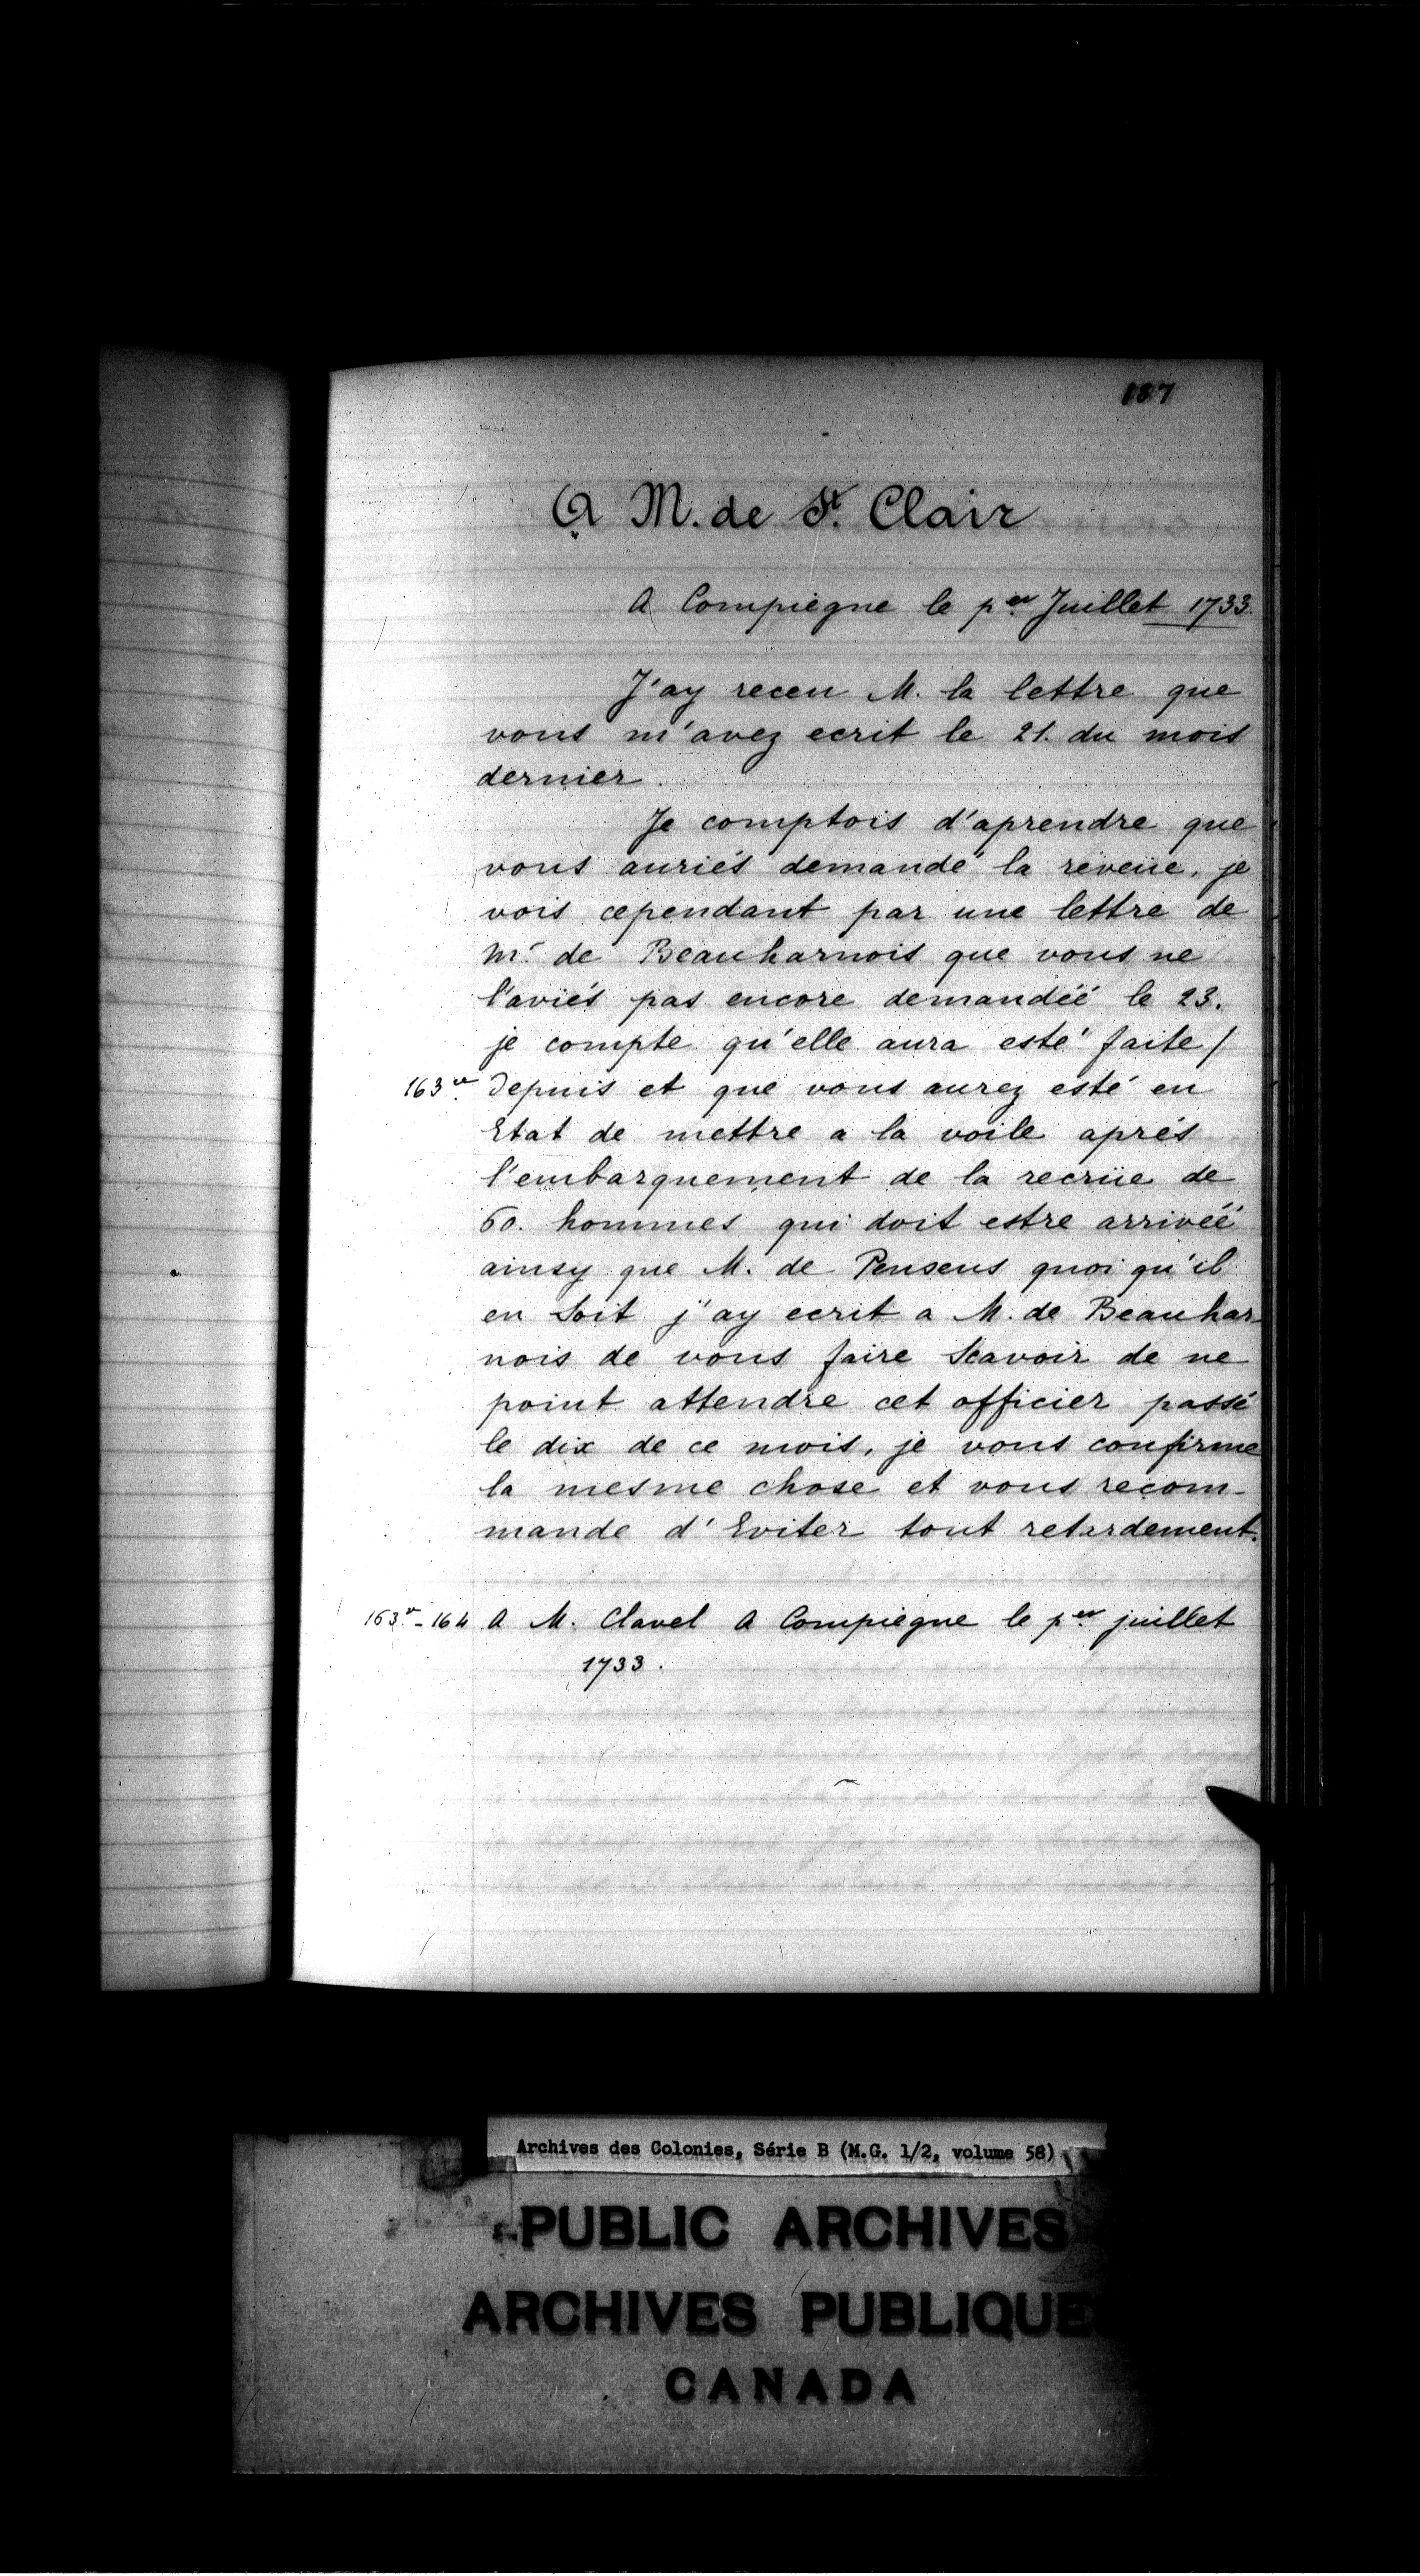 187
A M. de St. Clair
A Compiegne le per. Juillet 1733.
J'ay receu M. la lettre que
vous m'avez ecrit le 21. du mois
dernier.
Je comptois d'aprendre que
vous auriés demandé la reveüe, je
vois cependant par une lettre de
Mr. de Beauharnois que vous ne
l'aviés pas encore demandéé le 23.
je compte qu'elle aura esté faite /
163 vo. Depuis et que vous aurez esté en
Etat de mettre a la voile aprés
l'embarquement de la recrüe de
60. hommes qui doit estre arrivéé
ainsy que M. de Pensens quoi qu'il
en Soit j'ay ecrit a M. de Beauhar-
nois de vous faire Scavoir de ne
point attendre cet officier passé
le dix de ce mois, je vous confirme
la mesme chose et vous recom-
mande d'Eviter tout retardement.
163 vo. - 164 A M. Clavel A Compiegne le per. juillet
1733.
Archives des Colonies, Série B (M.G. 1/2, volume 58)
PUBLIC ARCHIVES
ARCHIVES PUBLIQUE
CANADA